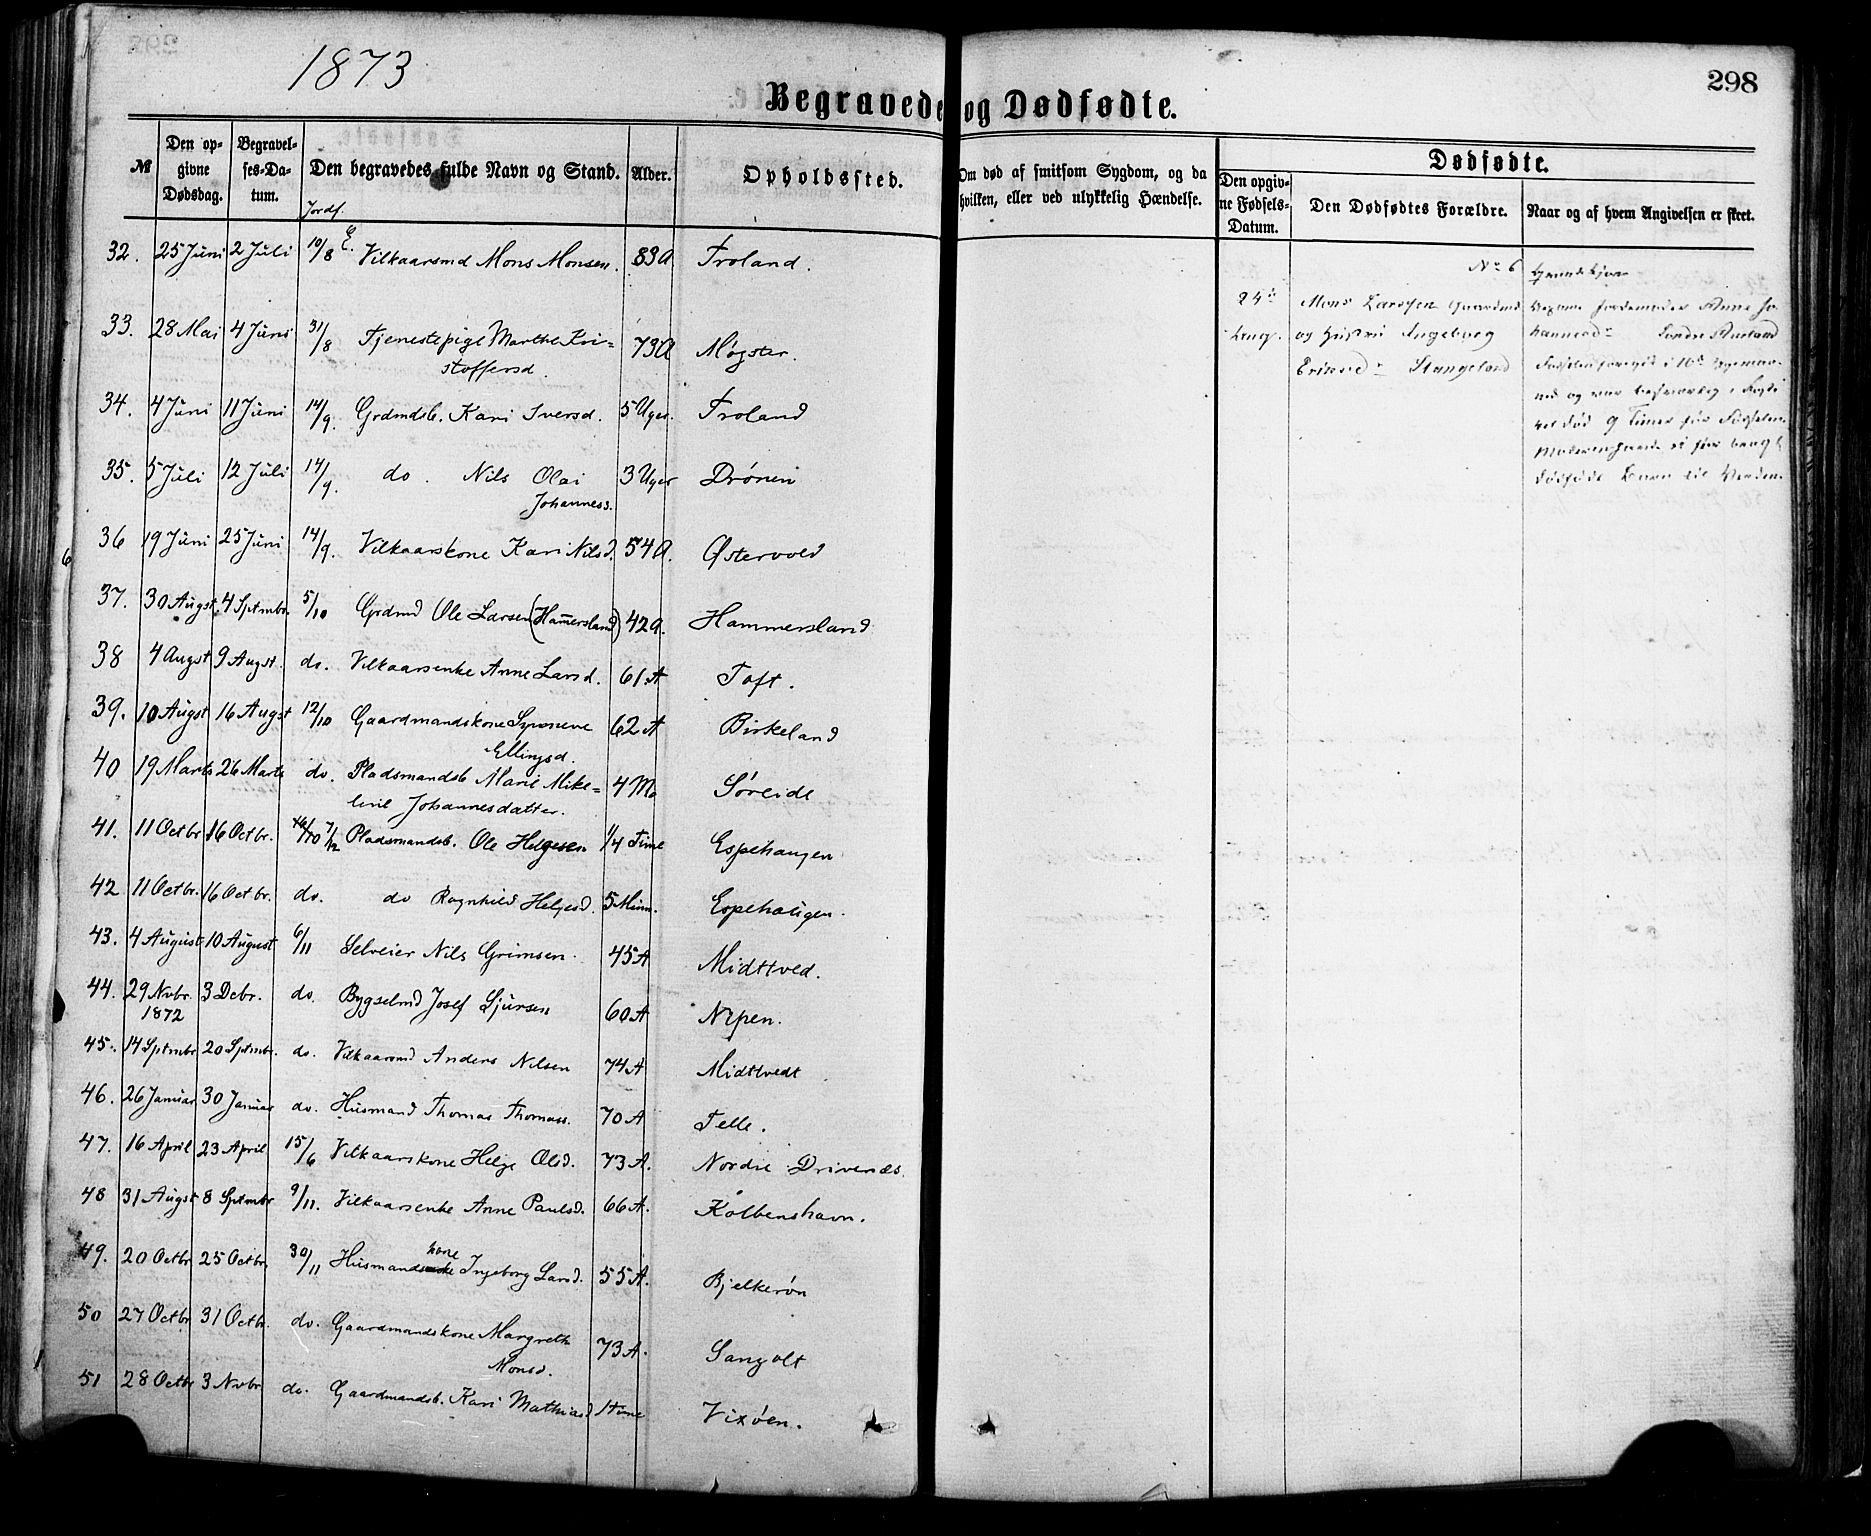 1873
298
Begravede og Dødfødte.
№
Den opgivne Dødsdag.
Begravelses-Datum.
Den begravedes fulde Navn og Stand.
Alder.
Opholdssted.
Om død af smitsom Sygdom, og da hvilken, eller ved ulykkelig Hændelse.
Dødfødte.
Den opgivne Fødsels-Datum.
Den Dødfødtes Forældre.
Naar og af hvem Angivelsen er skeet.
Jordf.
32. 25 Juni 2 Juli 10/8 Vilkaarsmd Mons Monsen. 83 A Troland.
33. 28 Mai 4 Juni 31/8 Tjenestepige Marthe Kri=
stoffersd. 73 A Møgster.
34. 4 Juni 11 Juni 14/9. Grdmdsb. Kari Iversd. 5 Uger. Troland
35. 5 Juli 12 Juli 14/9. do. Nils Olai
Johanness. 3 Uger Drønen
36 19 Juni 25 Juni 14/9. Vilkaarskone Kari Nilsd. 54 A. Østervold
37. 30 Augst. 4 Sptmbr. 5/10 Grdmd Ole Larsen (Hamersland) 42 A. Hammersland
38 4 Augst 9 Augst. do. Vilkaarsenke Anne Larsd. 61 A Toft.
39. 10 Augst 16 Augst 12/10 Gaardmandskone Synneve
Ellingsd. 62 A Birkeland
40 19 Marts 26 Marts do. Pladsmandsb Marie Mike=
line Johannesdatter. 4 Mo Søreide
41. 11 Octbr 16 Octbr. 16/10 7/12 Pladsmandsb. Ole Helgesen 1/4 Time Espehaugen
42 11 Octbr. 16 Octbr. do. do Ragnhild Helgesd. 5 Minn. Espehaugen.
43. 4 August 10 August 6/11 Selveier Nils Grimsen. 45 A Midttved.
44. 29 Nvbr. 3 Debr. do. Bygselmd Josef Sjursen 60 A Nipen.
1872
45. 14 Sptmbr 20 Sptmbr. do. Vilkaarsmd Anders Nilsen 74 A Midttvedt
46. 26 Januar 30 Januar do. Husmand Thomas Thomass. 70 A Telle.
47. 16 April 23 April 15/6 Vilkaarskone Helge Olsd. 73 A. Nordre Drivenes.
48 31 Augst 8 Sptmbr 9/11. Vilkaarsenke Anne Paulsd. 66 A. Kolbenshavn.
49. 20 Octbr 25 Octbr. 30/11 Husmandskone Ingeborg Larsd. 55 A. Bjelkerøn
50 27 Octbr 31 Octbr. do. Gaardmandskone Margrethe
Monsd. 73 A. Sangolt
51 28 Octbr 3 Nvbr do. Gaardmandsb. Kari Mathiasd 1 time Vixøen.
No 6
24de
Mons Larssen Gaardmd
og Hustru Ingeborg
Eriksd Stangeland